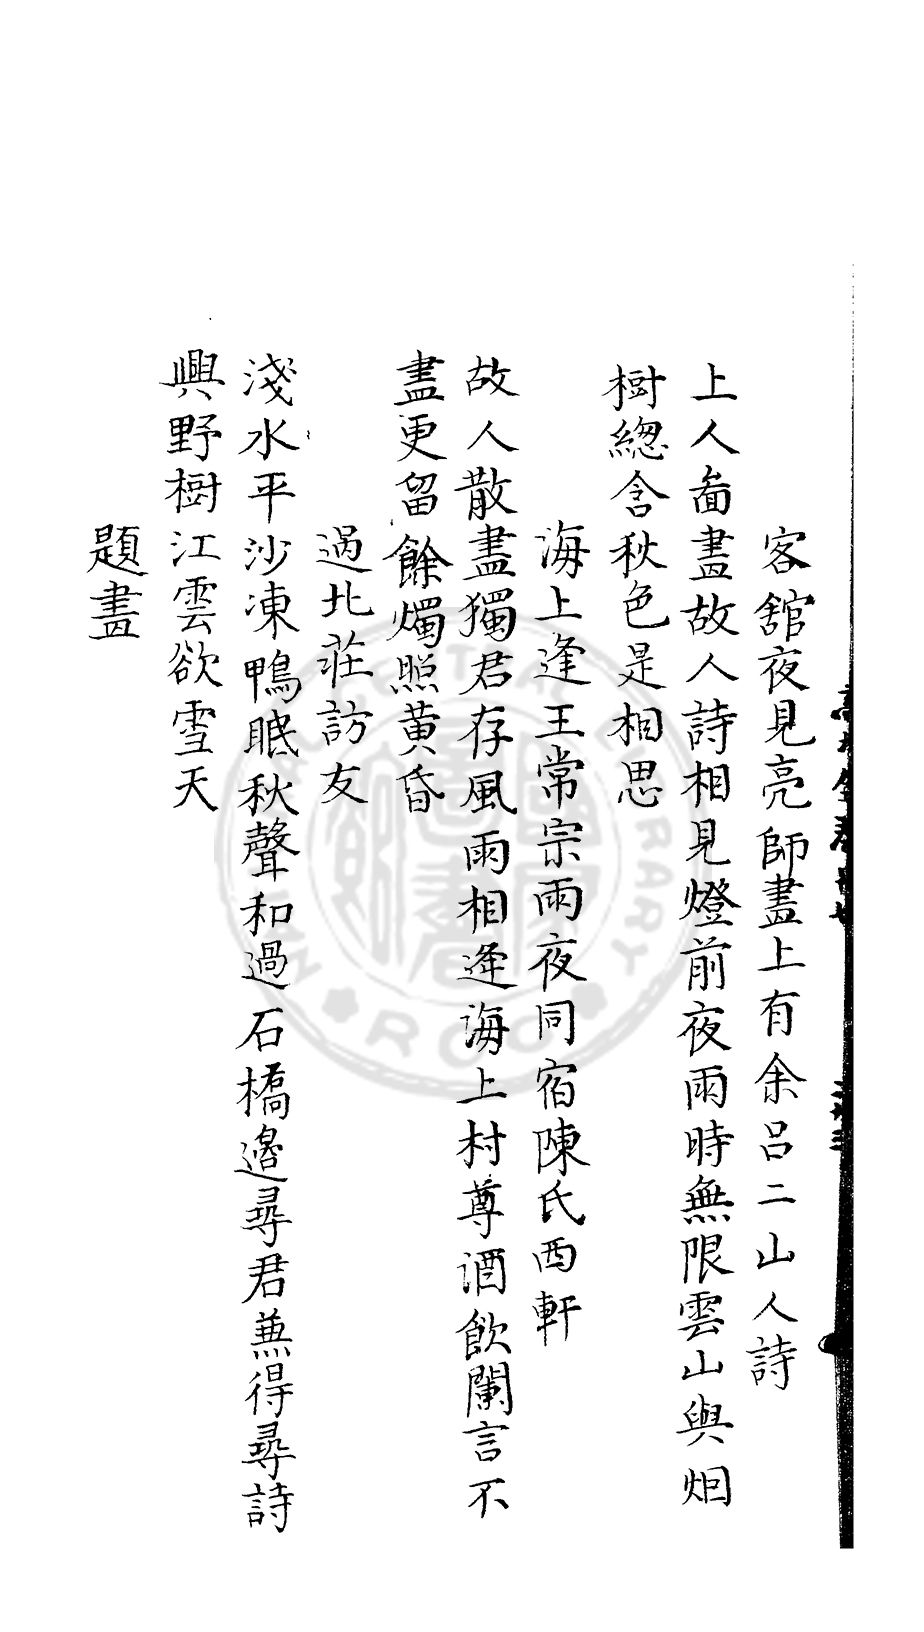 客舘夜見亮師畫上有余呂二山人詩
上人畵畫故人詩相見燈前夜雨時無限雲山與烟
樹總含秋色是相思
海上逢王常宗雨夜同宿陳氏西軒
故人散盡獨君存風雨相逢海上村尊酒飲闌言不
盡更留餘燭照黄昏
過北莊訪友
淺水平沙凍鴨眠秋聲和過石橋邊尋君兼得尋詩
興野樹江雲欲雪天
題畫
NATIONAL CENTRAL LIBRARY
R.O.C
國家圖書館藏